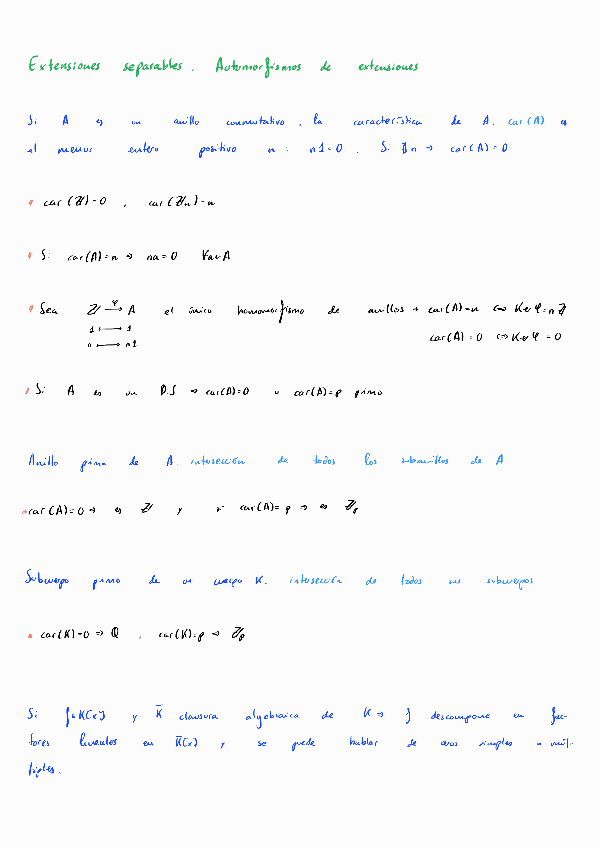 Extensiones separables. Automorfismos de extensiones
Si A es un anillo conmutativo, la característica de A, car(A) es
el menor entero positivo n : n1=0. Si ∄n → car(A)=0
* car(ℤ)=0 , car(ℤn)=n
* Si car(A)=n → na=0 ∀a∈A
* Sea ℤ —φ→ A el único homomorfismo de anillos → car(A)=n ⇔ Ker φ = nℤ
1 ↦ 1
n ↦ n1
car(A)=0 ⇔ Ker φ = 0
* Si A es un D.I → car(A)=0 o car(A)=p primo
Anillo primo de A. intersección de todos los subanillos de A
* car(A)=0 → es ℤ y si car(A)=p → es ℤp
Subcuerpo primo de un cuerpo K. intersección de todos sus subcuerpos
* car(K)=0 → ℚ , car(K)=p → ℤp
Si f∈K[x] y K̄ clausura algebraica de K → f descompone en fac-
tores lineales en K̄[x] y se puede hablar de ceros simples o múl-
tiples.